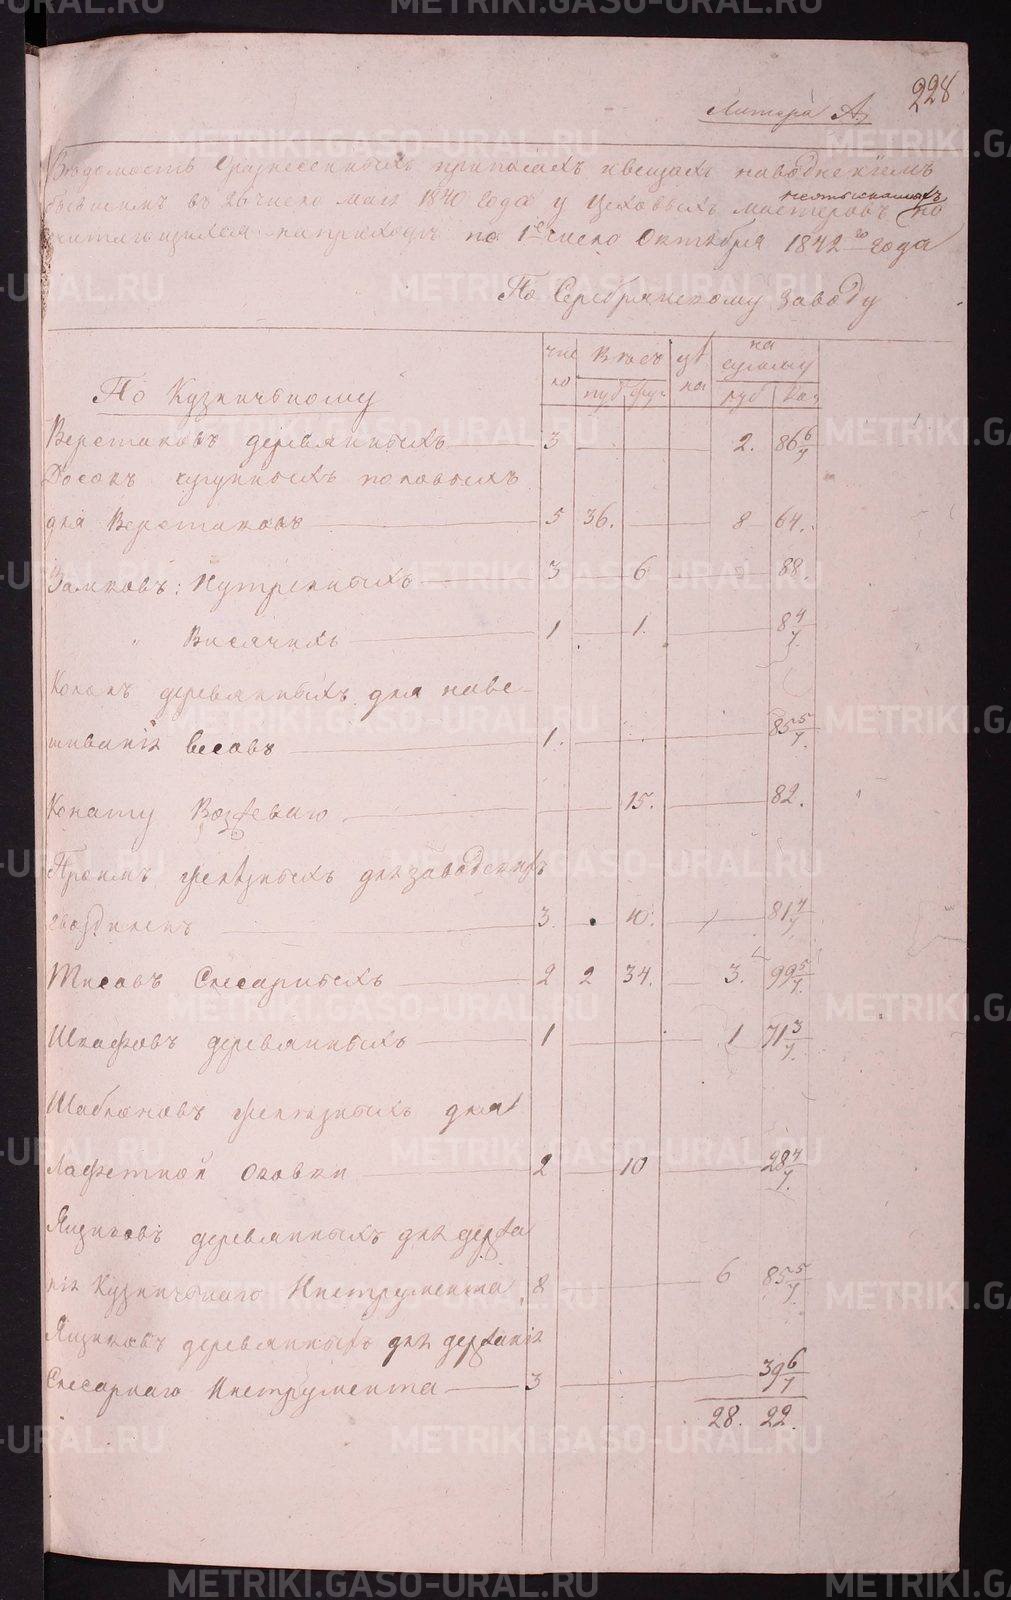 228
Литера А.
Ведомость о разнесенныхъ припасахъ и вещахъ наводнениемъ
бывшимъ въ 26 число мая 1840 года у цеховыхъ мастеровъ неотысканныхъ но
числящихся на приходѣ по 1е число Октября 1842го года
По Серебрянскому заводу
число Весъ цѣна на сумму
пуд фун руб коп
По Кузничьному
Верстаковъ деревянныхъ 3 2. 86 6/7
Досокъ чугунныхъ половыхъ
для Верстаковъ 5 36. 8 64.
Замковъ: Нутренныхъ 3 6 88.
" Висячихъ 1 1. 8 4/7
деревянныхъ для наве-
шивания весовъ 1. 85 5/7
Канату 15. 82.
железныхъ для заводскихъ
3. 10. 81 4/7
Тисовъ Слесарныхъ 2 2 34. 3. 99 5/7
Шкафовъ деревянныхъ 1 1 71 3/7
Шаблоновъ железныхъ для
Лафетной Оковки 2 10 28 4/7
Ящиковъ деревянныхъ для держа
ния Кузничьнаго Инструмента 8 6 85 5/7
Ящиковъ деревянныхъ для держания
Слесарнаго Инструмента 3 39 6/7
28. 22.
METRIKI.GASO-URAL.RU